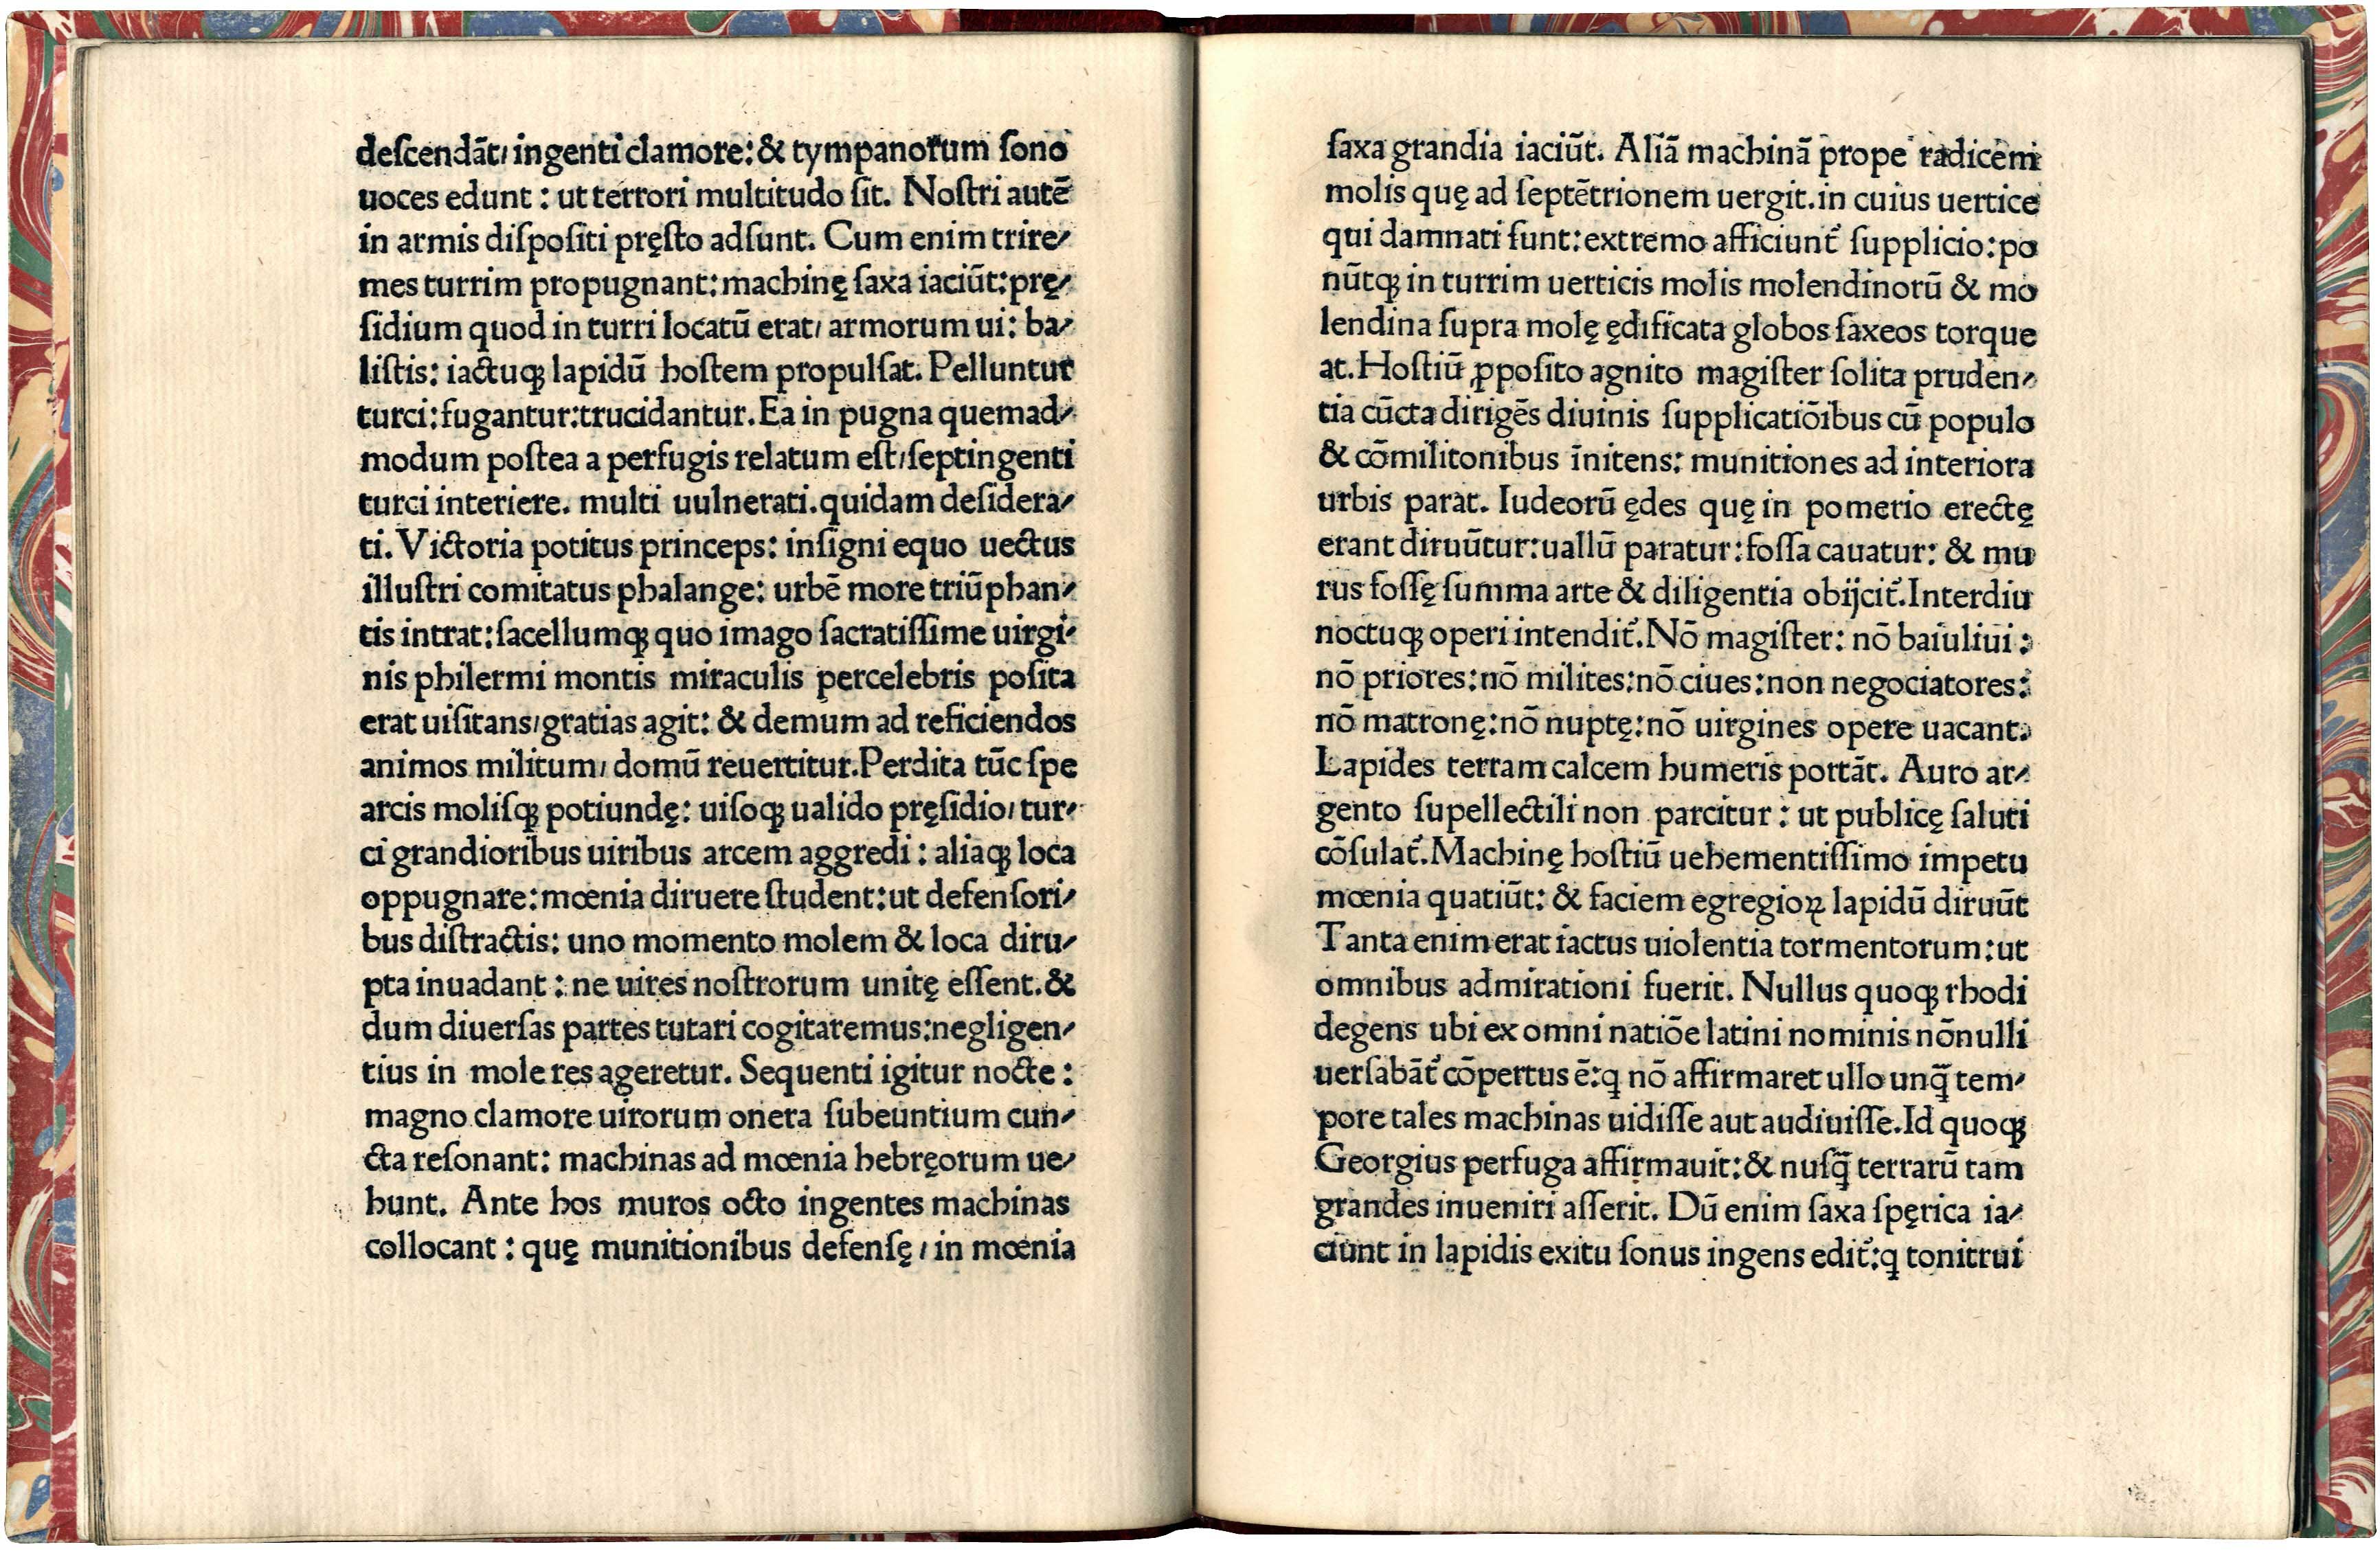 deſcendāt/ ingenti clamore: & tympanorum ſono
uoces edunt : ut terrori multitudo ſit. Noſtri autē
in armis diſpoſiti pręſto adſunt. Cum enim trire/
mes turrim propugnant: machinę ſaxa iaciūt: prę/
ſidium quod in turri locatū erat/ armorum ui: ba/
liſtis: iactuqꝫ lapidū hoſtem propulſat. Pelluntur
turci: fugantur: trucidantur. Ea in pugna quemad/
modum poſtea a perfugis relatum eſt/ ſeptingenti
turci interiere. multi uulnerati. quidam deſidera/
ti. Victoria potitus princeps: inſigni equo uectus
illuſtri comitatus phalange: urbē more triūphan/
tis intrat: ſacellumqꝫ quo imago ſacratiſſime uirgi/
nis philermi montis miraculis percelebris poſita
erat uiſitans/ gratias agit: & demum ad reficiendos
animos militum/ domū reuertitur. Perdita tūc ſpe
arcis moliſqꝫ potiundę: uiſoqꝫ ualido pręſidio/ tur/
ci grandioribus uiribus arcem aggredi : aliaqꝫ loca
oppugnare: mœnia diruere ſtudent: ut defenſori/
bus diſtractis: uno momento molem & loca diru/
pta inuadant : ne uires noſtrorum unitę eſſent. &
dum diuerſas partes tutari cogitaremus: negligen/
tius in mole res ageretur. Sequenti igitur nocte :
magno clamore uirorum onera ſubeuntium cun/
cta reſonant: machinas ad mœnia hebręorum ue/
hunt. Ante hos muros octo ingentes machinas
collocant : quę munitionibus defenſę / in mœnia
ſaxa grandia iaciūt. Aliā machinā prope radicem
molis quę ad ſeptētrionem uergit. in cuius uertice
qui damnati ſunt: extremo afficiunt᷑ ſupplicio: po
nūtqꝫ in turrim uerticis molis molendinorū & mo
lendina ſupra molę ędificata globos ſaxeos torque
at. Hoſtiū ꝓpoſito agnito magiſter ſolita pruden/
tia cūcta dirigēs diuinis ſupplicatiōibus cū populo
& cōmilitonibus īnitens: munitiones ad interiora
urbis parat. Iudeorū ędes quę in pomerio erectę
erant diruūtur: uallū paratur: foſſa cauatur: & mu
rus foſſę ſumma arte & diligentia obijcit᷑. Interdiu
noctuqꝫ operi intendit᷑. Nō magiſter: nō baiuliui :
nō priores: nō milites: nō ciues: non negociatores:
nō matronę: nō nuptę: nō uirgines opere uacant.
Lapides terram calcem humeris portāt. Auro ar/
gento ſupellectili non parcitur : ut publicę ſaluti
cōſulat᷑. Machinę hoſtiū uehementiſſimo impetu
mœnia quatiūt: & faciem egregioꝝ lapidū diruūt
Tanta enim erat iactus uiolentia tormentorum: ut
omnibus admirationi fuerit. Nullus quoqꝫ rhodi
degens ubi ex omni natiōe latini nominis nōnulli
uerſabāt᷑ cōpertus ē: ꝗ nō affirmaret ullo unꝗ̄ tem/
pore tales machinas uidiſſe aut audiuiſſe. Id quoqꝫ
Georgius perfuga affirmauit: & nuſꝗ̄ terrarū tam
grandes inueniri aſſerit. Dū enim ſaxa ſpęrica ia/
ciunt in lapidis exitu ſonus ingens edit᷑: ꝗ tonitrui